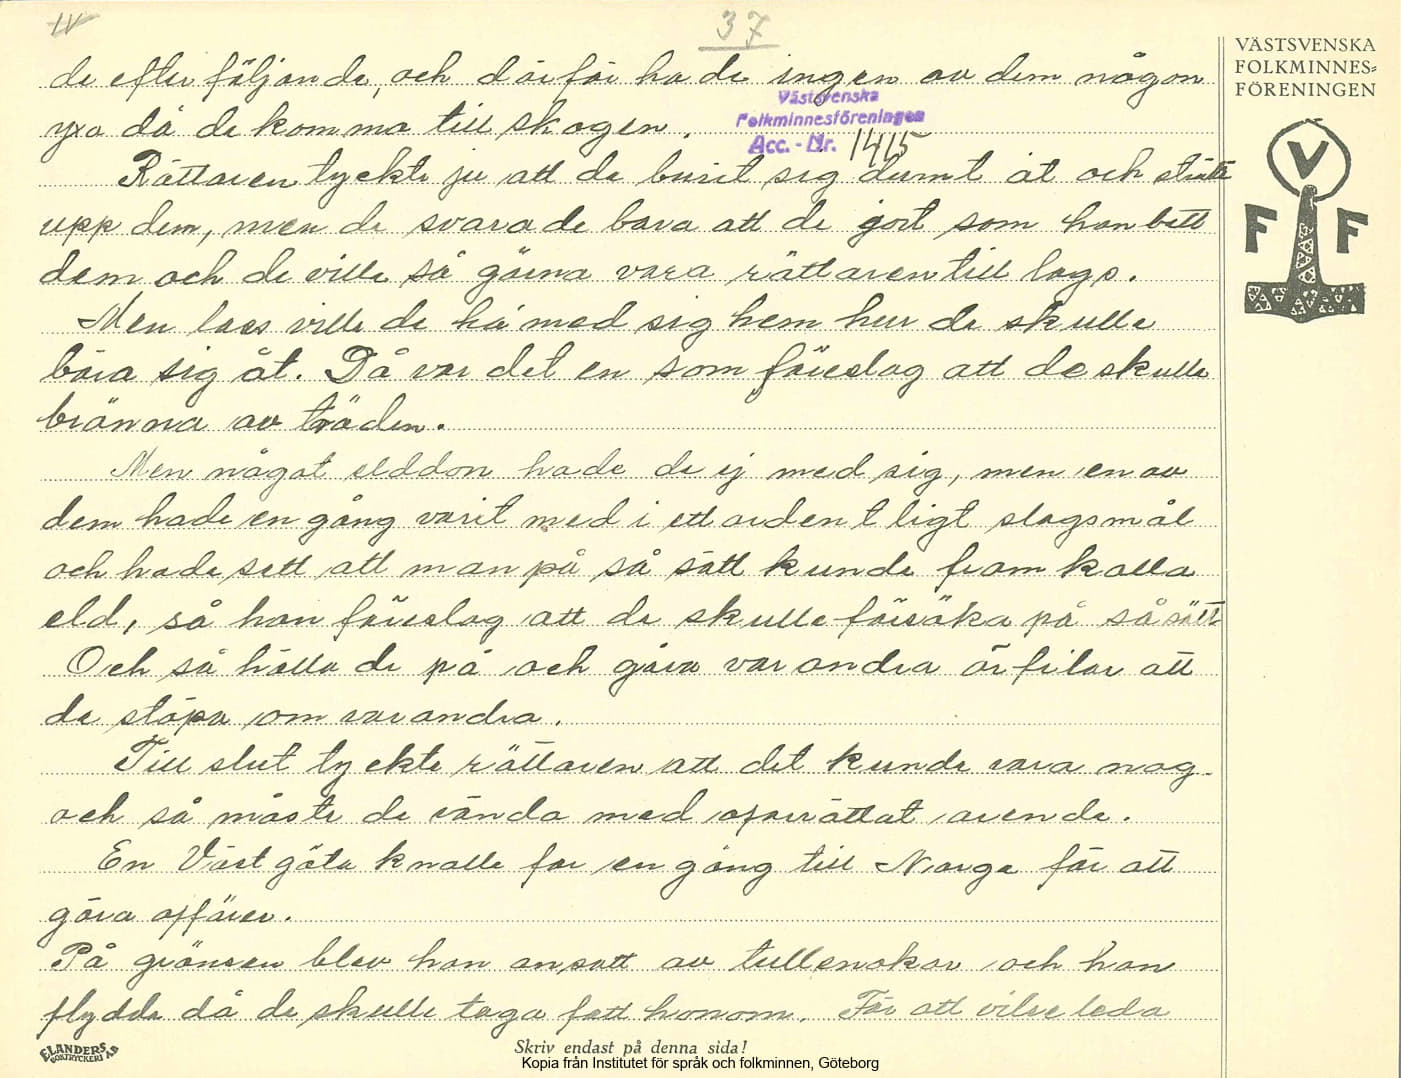 IV
37
VÄSTSVENSKA
FOLKMINNES=
FÖRENINGEN
V
F F
de efter följande, och därför hade ingen av dem någon
Västsvenska
Folkminnesföreningen
Acc. - Nr. 1415
yxa då de komma till skogen.
Rättaren tyckte ju att de burit sig dumt åt och sträckte
upp dem, men de svarade bara att de gort som han bett
dem och de ville så gärna vara rättaren till lags.
Men lass ville de ha med sig hem hur de skulle
bära sig åt. Då var det en som föreslog att de skulle
bränna av träden.
Men något elddon hade de ej med sig, men en av
dem hade en gång varit med i ett ordentligt slagsmål
och hade sett att man på så sätt kunde framkalla
eld, så han föreslog att de skulle försöka på så sätt
Och så hålla de på och gåva varandra örfilar att
de stöpa om varandra.
Till slut tyckte rättaren att det kunde vara nog.
och så måste de vända med oförrättat ärende.
En Västgöta knalle for en gång till Norge för att
göra affärer.
På gränsen blev han ansatt av tullsnokar och han
flydde då de skulle taga fatt honom. För att vilseleda
ELANDERS
BOKTRYCKERI AB
Skriv endast på denna sida!
Kopia från Institutet för språk och folkminnen, Göteborg